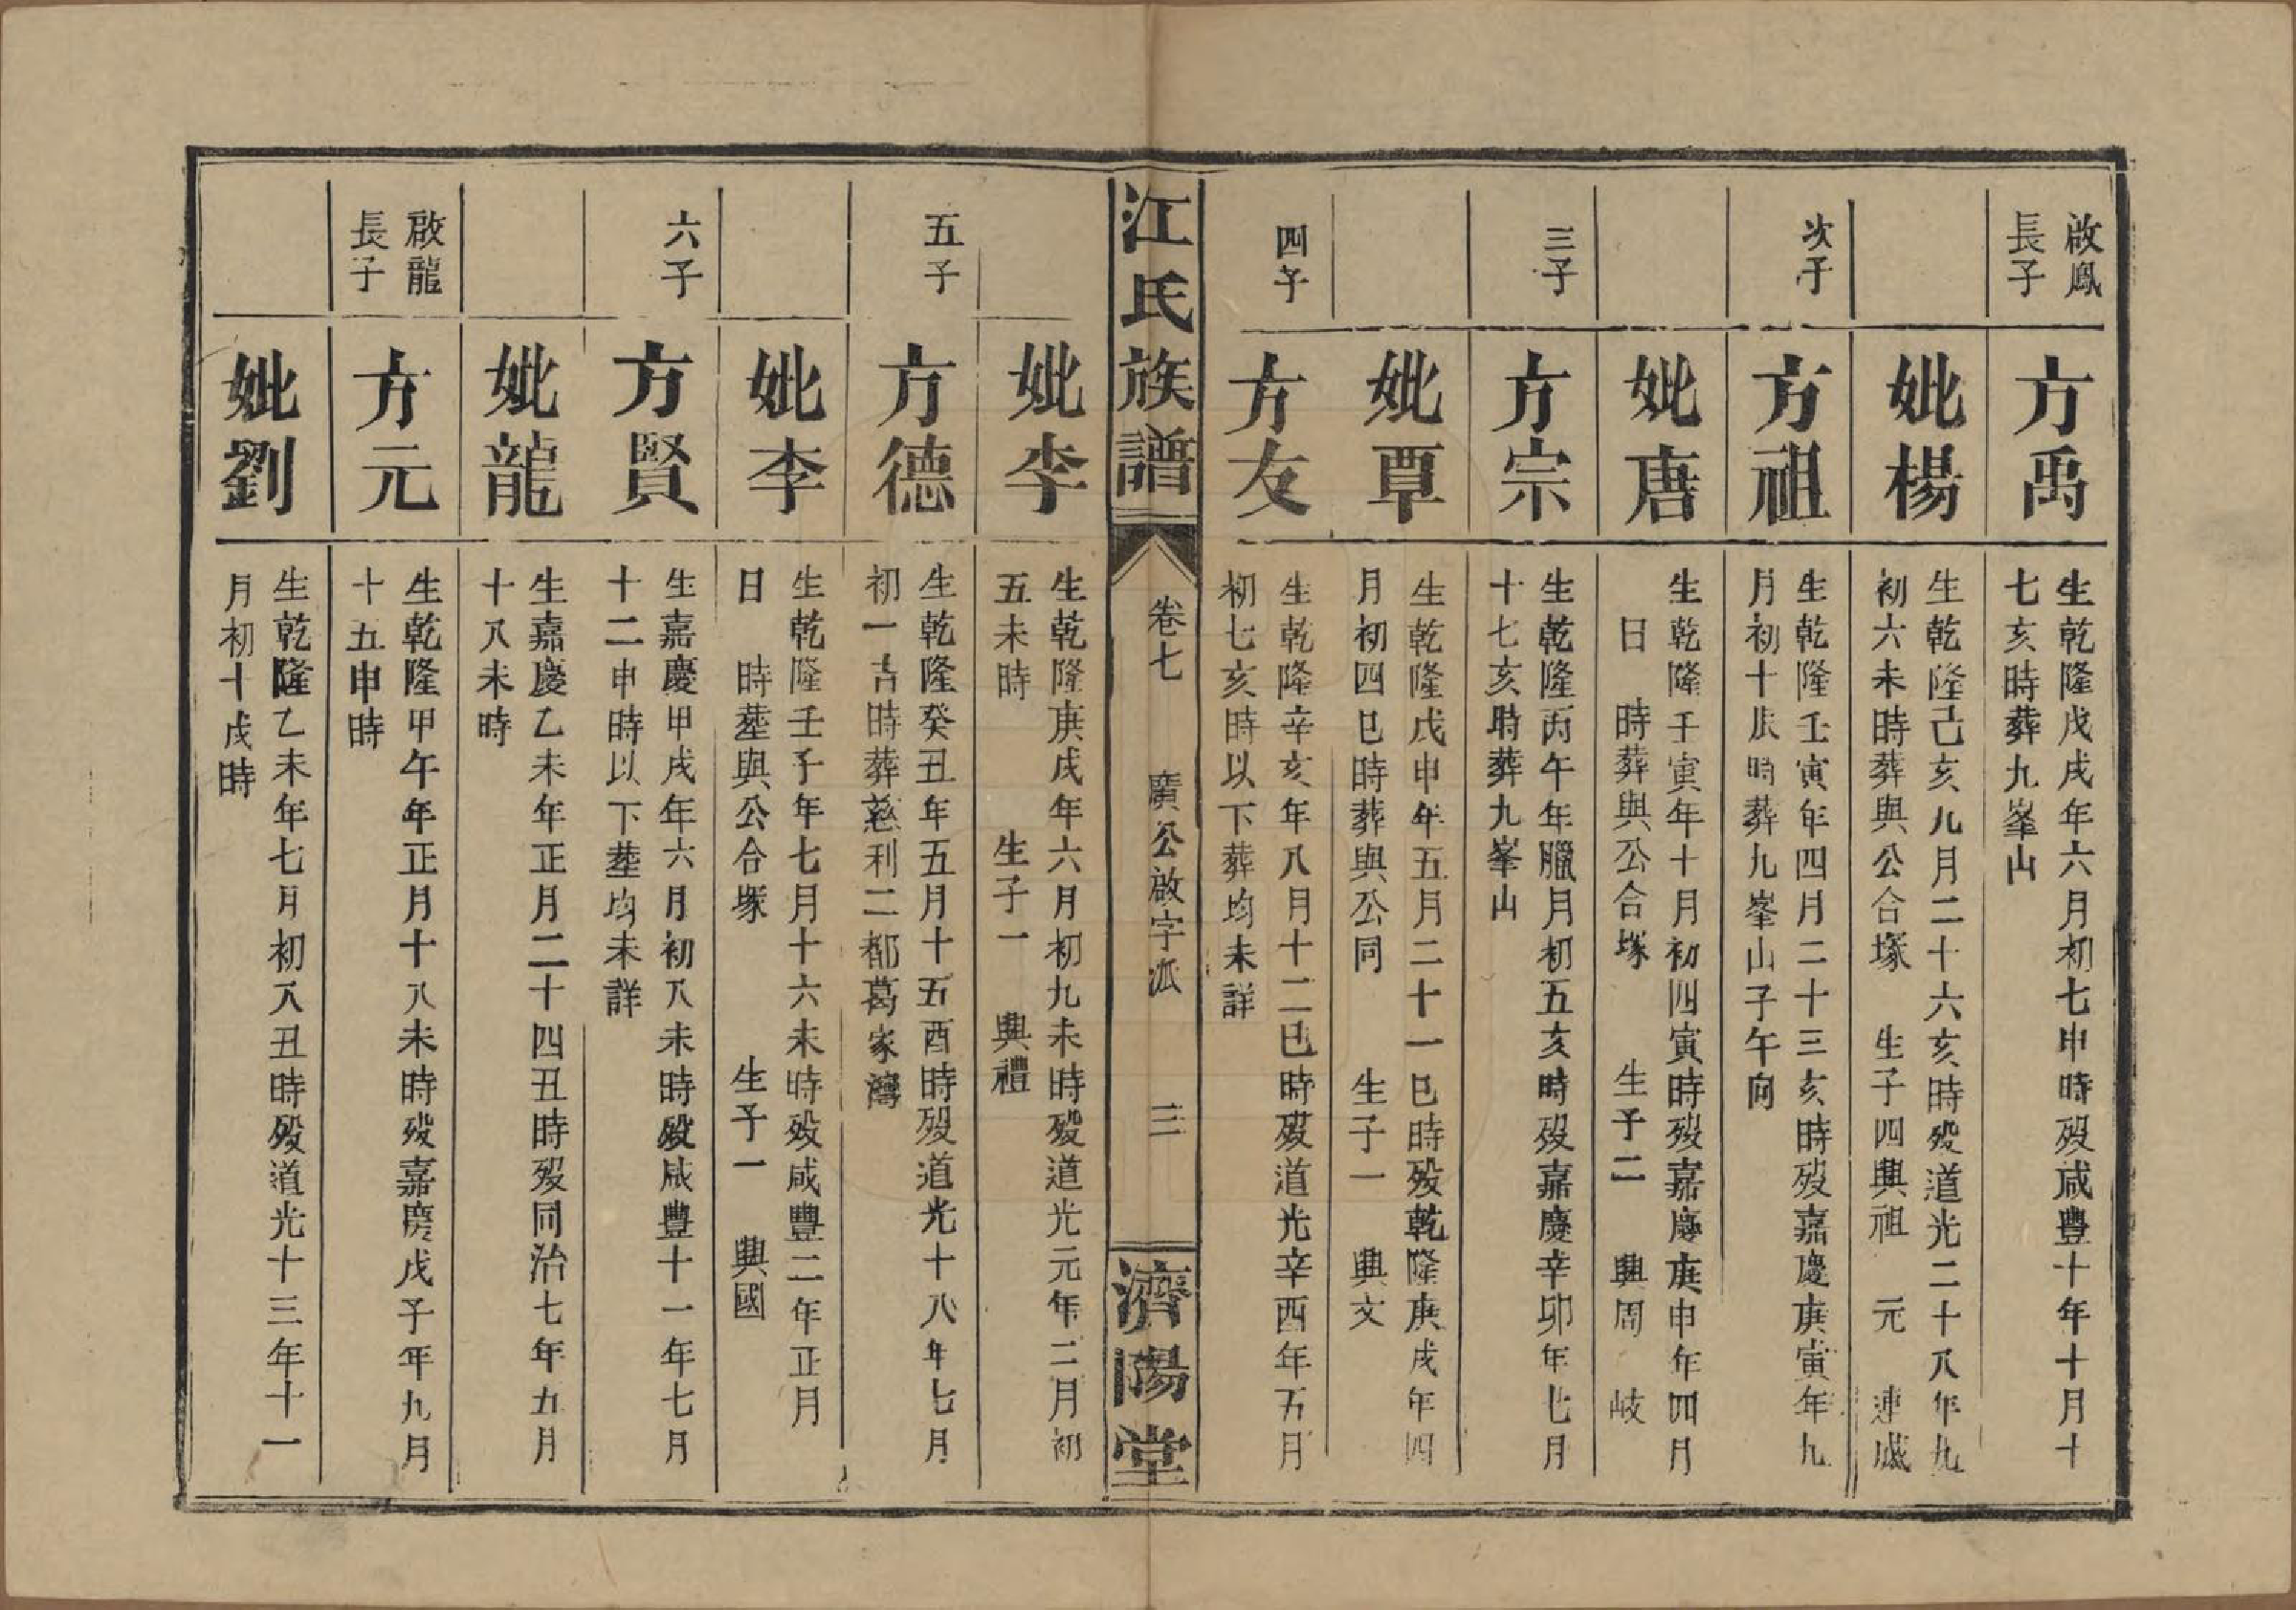 啟鳳
長子
方禹
生乾隆戊戌年六月初七申時歿咸豐十年十月十
七亥時葬九峯山
妣楊
生乾隆己亥九月二十六亥時歿道光二十八年九
初六未時葬與公合塚 生子四興祖 元 連 盛
次子
方祖
生乾隆壬寅年四月二十三亥時歿嘉慶庚寅年九
月初十辰時葬九峯山子午向
妣唐
生乾隆壬寅年十月初四寅時歿嘉慶庚申年四月
日 時葬與公合塚 生子二 興周 岐
三子
方宗
生乾隆丙午年臘月初五亥時歿嘉慶辛卯年七月
十七亥時葬九峯山
妣覃
生乾隆戊申年五月二十一巳時歿乾隆庚戌年四
月初四巳時葬與公同 生子一 興文
四子
方友
生乾隆辛亥年八月十二巳時歿道光辛酉年五月
初七亥時以下葬均未詳
江氏族譜
卷七 廣公啟字派 三
濟陽堂
妣李
生乾隆庚戌年六月初九未時歿道光元年二月初
五未時 生子一 興禮
五子
方德
生乾隆癸丑年五月十五酉時歿道光十八年七月
初一吉時葬慈利二都葛家灣
妣李
生乾隆壬子年七月十六未時歿咸豐二年正月
日 時塟與公合塚 生子一 興國
六子
方賢
生嘉慶甲戌年六月初八未時歿咸豐十一年七月
十二申時以下塟均未詳
妣龍
生嘉慶乙未年正月二十四丑時歿同治七年五月
十八未時
啟龍
長子
方元
生乾隆甲午年正月十八未時歿嘉慶戊子年九月
十五申時
妣劉
生乾隆乙未年七月初八丑時歿道光十三年十一
月初十戌時